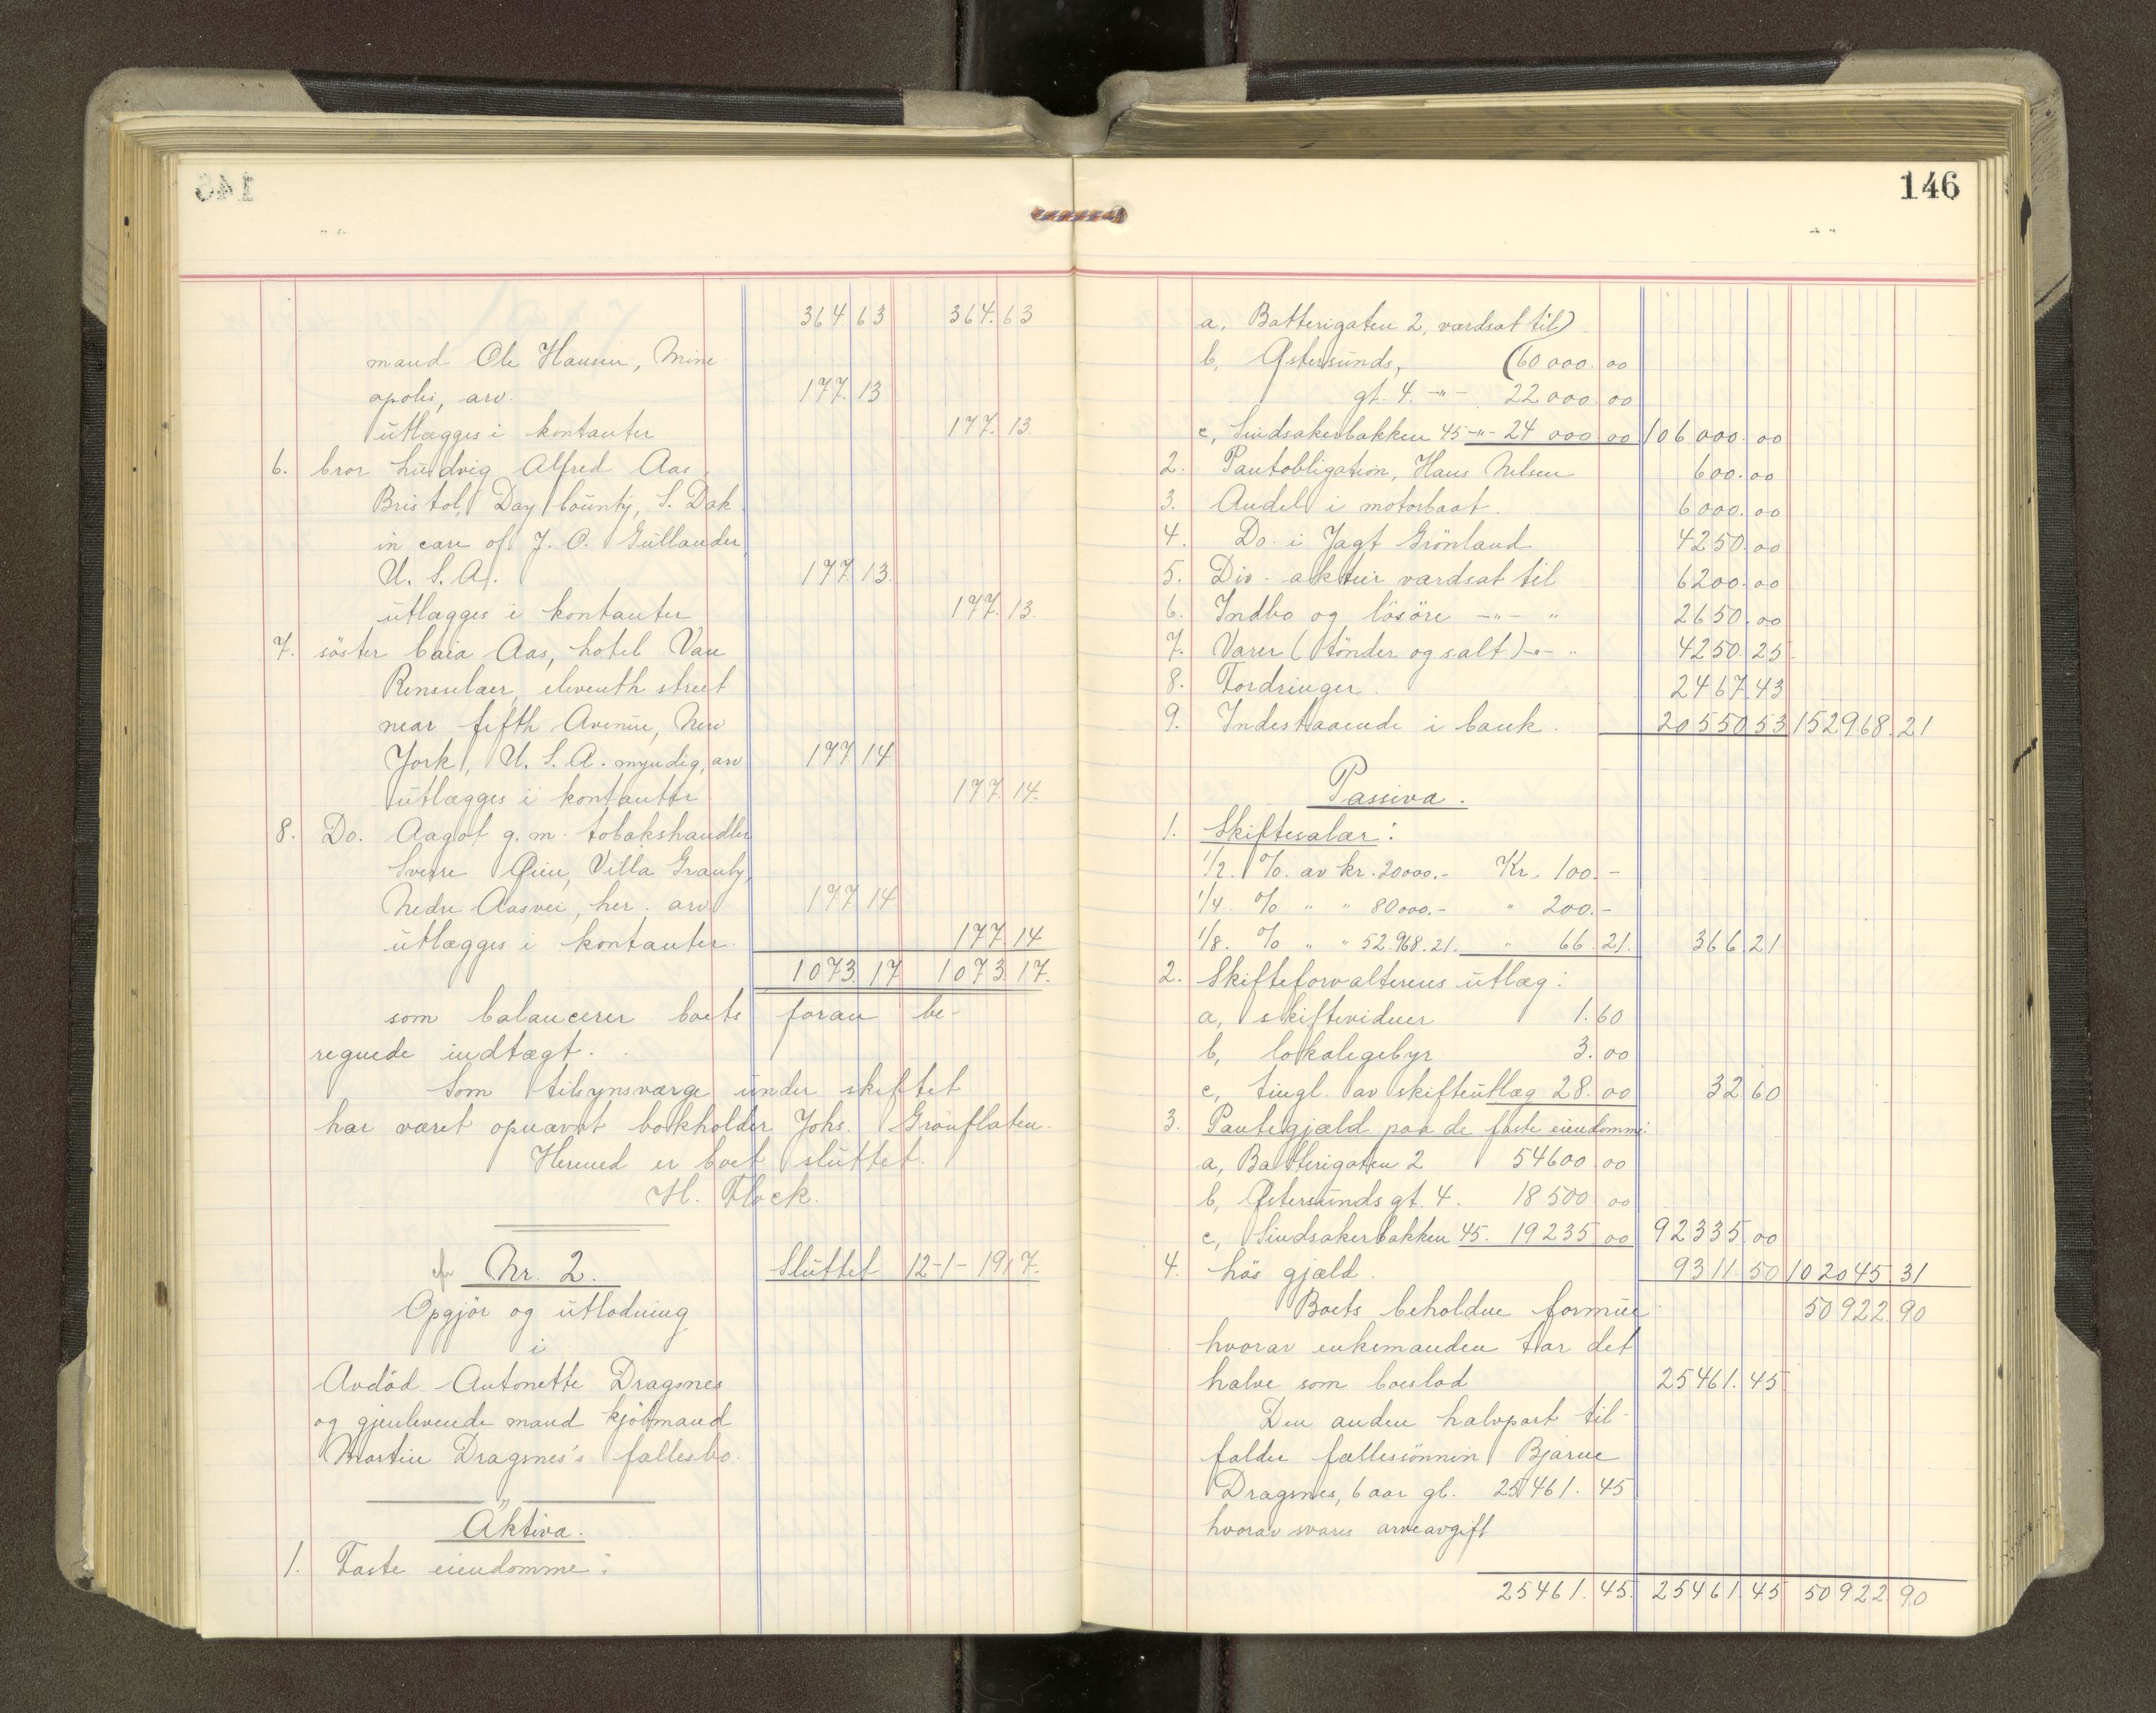 146
364.63 364.63
mand Ole Hansen, Mine
apolis, arv. 177.13
utlægges i kontanter 177.13
6. bror Ludvig Alfred Aas,
Bristol, Day County, S. Dak.
in care of J. O. Gullander,
U. S. A. 177.13.
utlægges i kontanter 177.13.
7. söster Caia Aas, hotel Van
Rensselaer, eleventh street
near fifth Avenue, New
York, U. S. A. myndig, arv 177.14
utlægges i kontanter 177.14.
8. Do. Aagot g. m. tobakshandler
Sverre Öien, Villa Granly,
Nedre Aasvei, her. arv 177.14
utlægges i kontanter. 177.14
1073.17 1073.17.
som balancerer boets foran be-
regnede indtægt.
Som tilsynsværge under skiftet
har været opnævnt bokholder Johs. Grönflaten.
Hermed er boet sluttet.
H. Flock.
Nr. 2. Sluttet 12-1-1917.
Opgjör og utlodning
i
Avdöd Antonette Dragsnes
og gjenlevende mand kjöbmand
Martin Dragsnes's fællesbo.
"
Aktiva.
1. Faste eiendomme:
146
a, Batterigaten 2, værdsat til)
b, Østersunds, (60 000.00
gt. 4. -"- 22000.00
c, Lindsakerbakken 45 -"- 24 000.00 106.000.00
2. Pantobligation, Hans Nelsen 600.00
3. Andel i motorbaat. 6000.00
4. Do. i Jagt Grönland 4250.00
5. Div. aktier værdsat til 6200.00
6. Indbo og lösöre -"- " 2650.00
7. Varer (tönder og salt) -"- " 4250.25
8. Fordringer. 2467.43
9. Indestaaende i bank. 20550.53 152968.21
Passiva.
1. Skiftesalær:
1/2. % av kr. 20000.- Kr. 100.-
1/4. % " " 80000.- " 200.-
1/8. % " " 52.968.21. " 66.21. 366.21
2. Skifteforvalterens utlæg:
a, skiftevidner 1.60
b, lokalegebyr 3.00
c, tingl. av skifteutlæg 28.00 32.60
3. Pantegjæld paa de faste eiendomme:
a, Batterigaten 2 54600.00
b, Østersunds gt. 4. 18500.00
c, Lindsakerbakken 45. 19235.00 92335.00
4. Lös gjæld. 9311.50 102045.31
Boets beholdne formue 50922.90
hvorav enkemanden tar det
halve som boeslod 25461.45
Den anden halvpart til-
falder fællessönnen Bjarne
Dragsnes, 6 aar gl. 25461.45
hvorav svares arveavgift
25461.45. 25461.45 50922.90